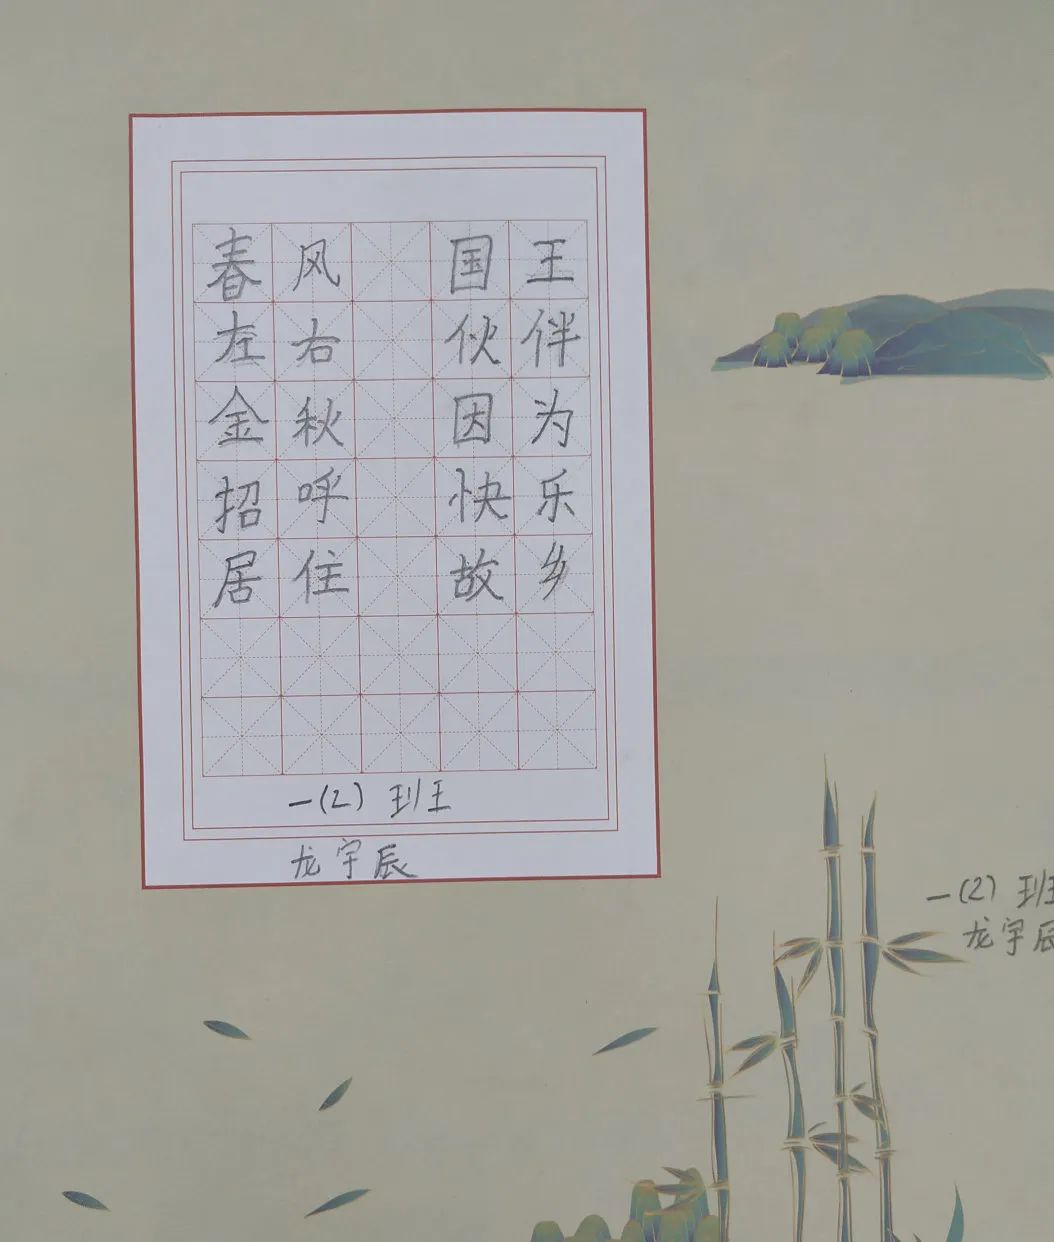 春风 国王
左右 伙伴
金秋 因为
招呼 快乐
居住 故乡
一(2) 班王
龙宇辰
一(2) 班
龙宇辰